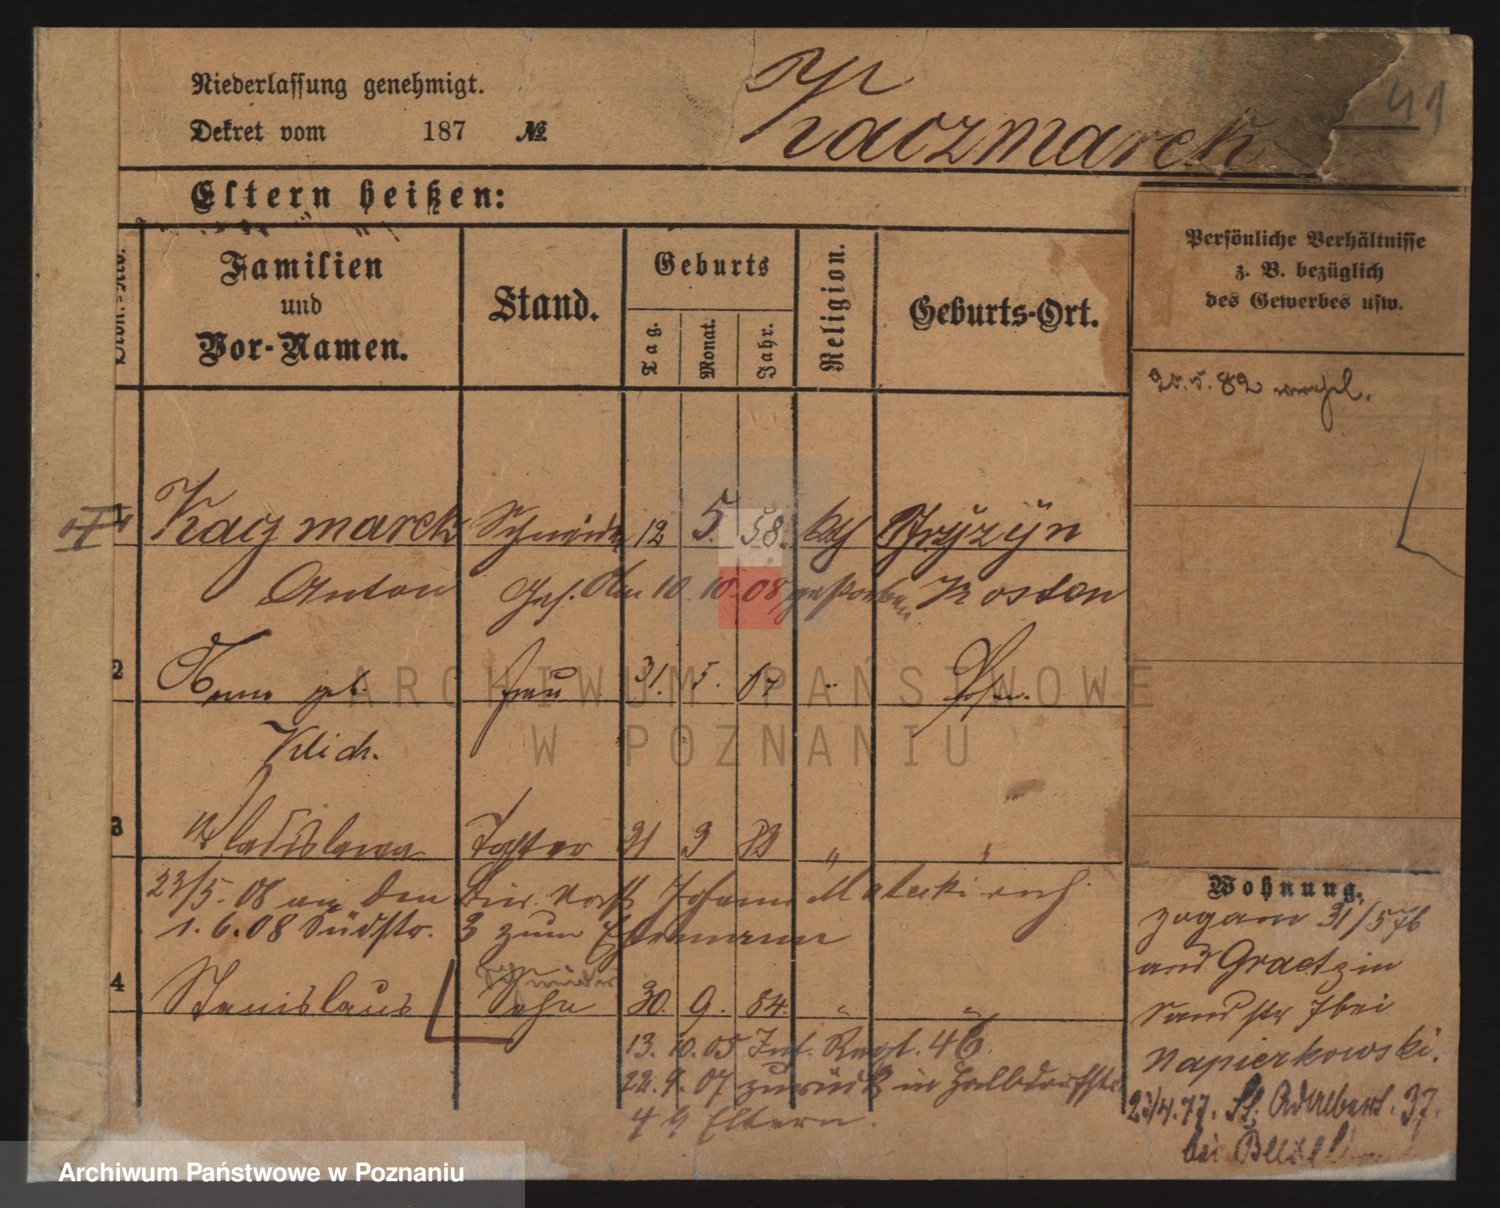 Niederlassung genehmigt.
Dekret vom 187 №
Kaczmarek
41
Eltern heißen:
Familien und Vor-Namen.
Stand.
Geburts
Tag.
Monat.
Jahr.
Religion.
Geburts-Ort.
Persönliche Verhältnisse
z. B. bezüglich
des Gewerbes usw.
1 Kaczmarek Schneider 12 5. 58. kath
Anton Ges. 10. 10. 08 gestorben Kosten
2 geb. Frau 31. 5. 67 " Posen.
Klich.
3 Wladislawa Tochter 31 3 83 " "
22/5. 08 an den Johann Malecki
1. 6. 08 Südstr. 3 zum Ehemann
4 Stanislaus Sohn 30. 9. 84. " "
13. 10. 05 Inf. Regt. 46.
22. 9. 07 zurück in
4 Eltern.
Wohnung.
zogam 31/5 76
aus Graetz in
Sandstr 7 bei
Napierkowski.
23/4.77. St. Adalbert. 37.
bei
ARCHIWUM PAŃSTWOWE
W POZNANIU
Archiwum Państwowe w Poznaniu